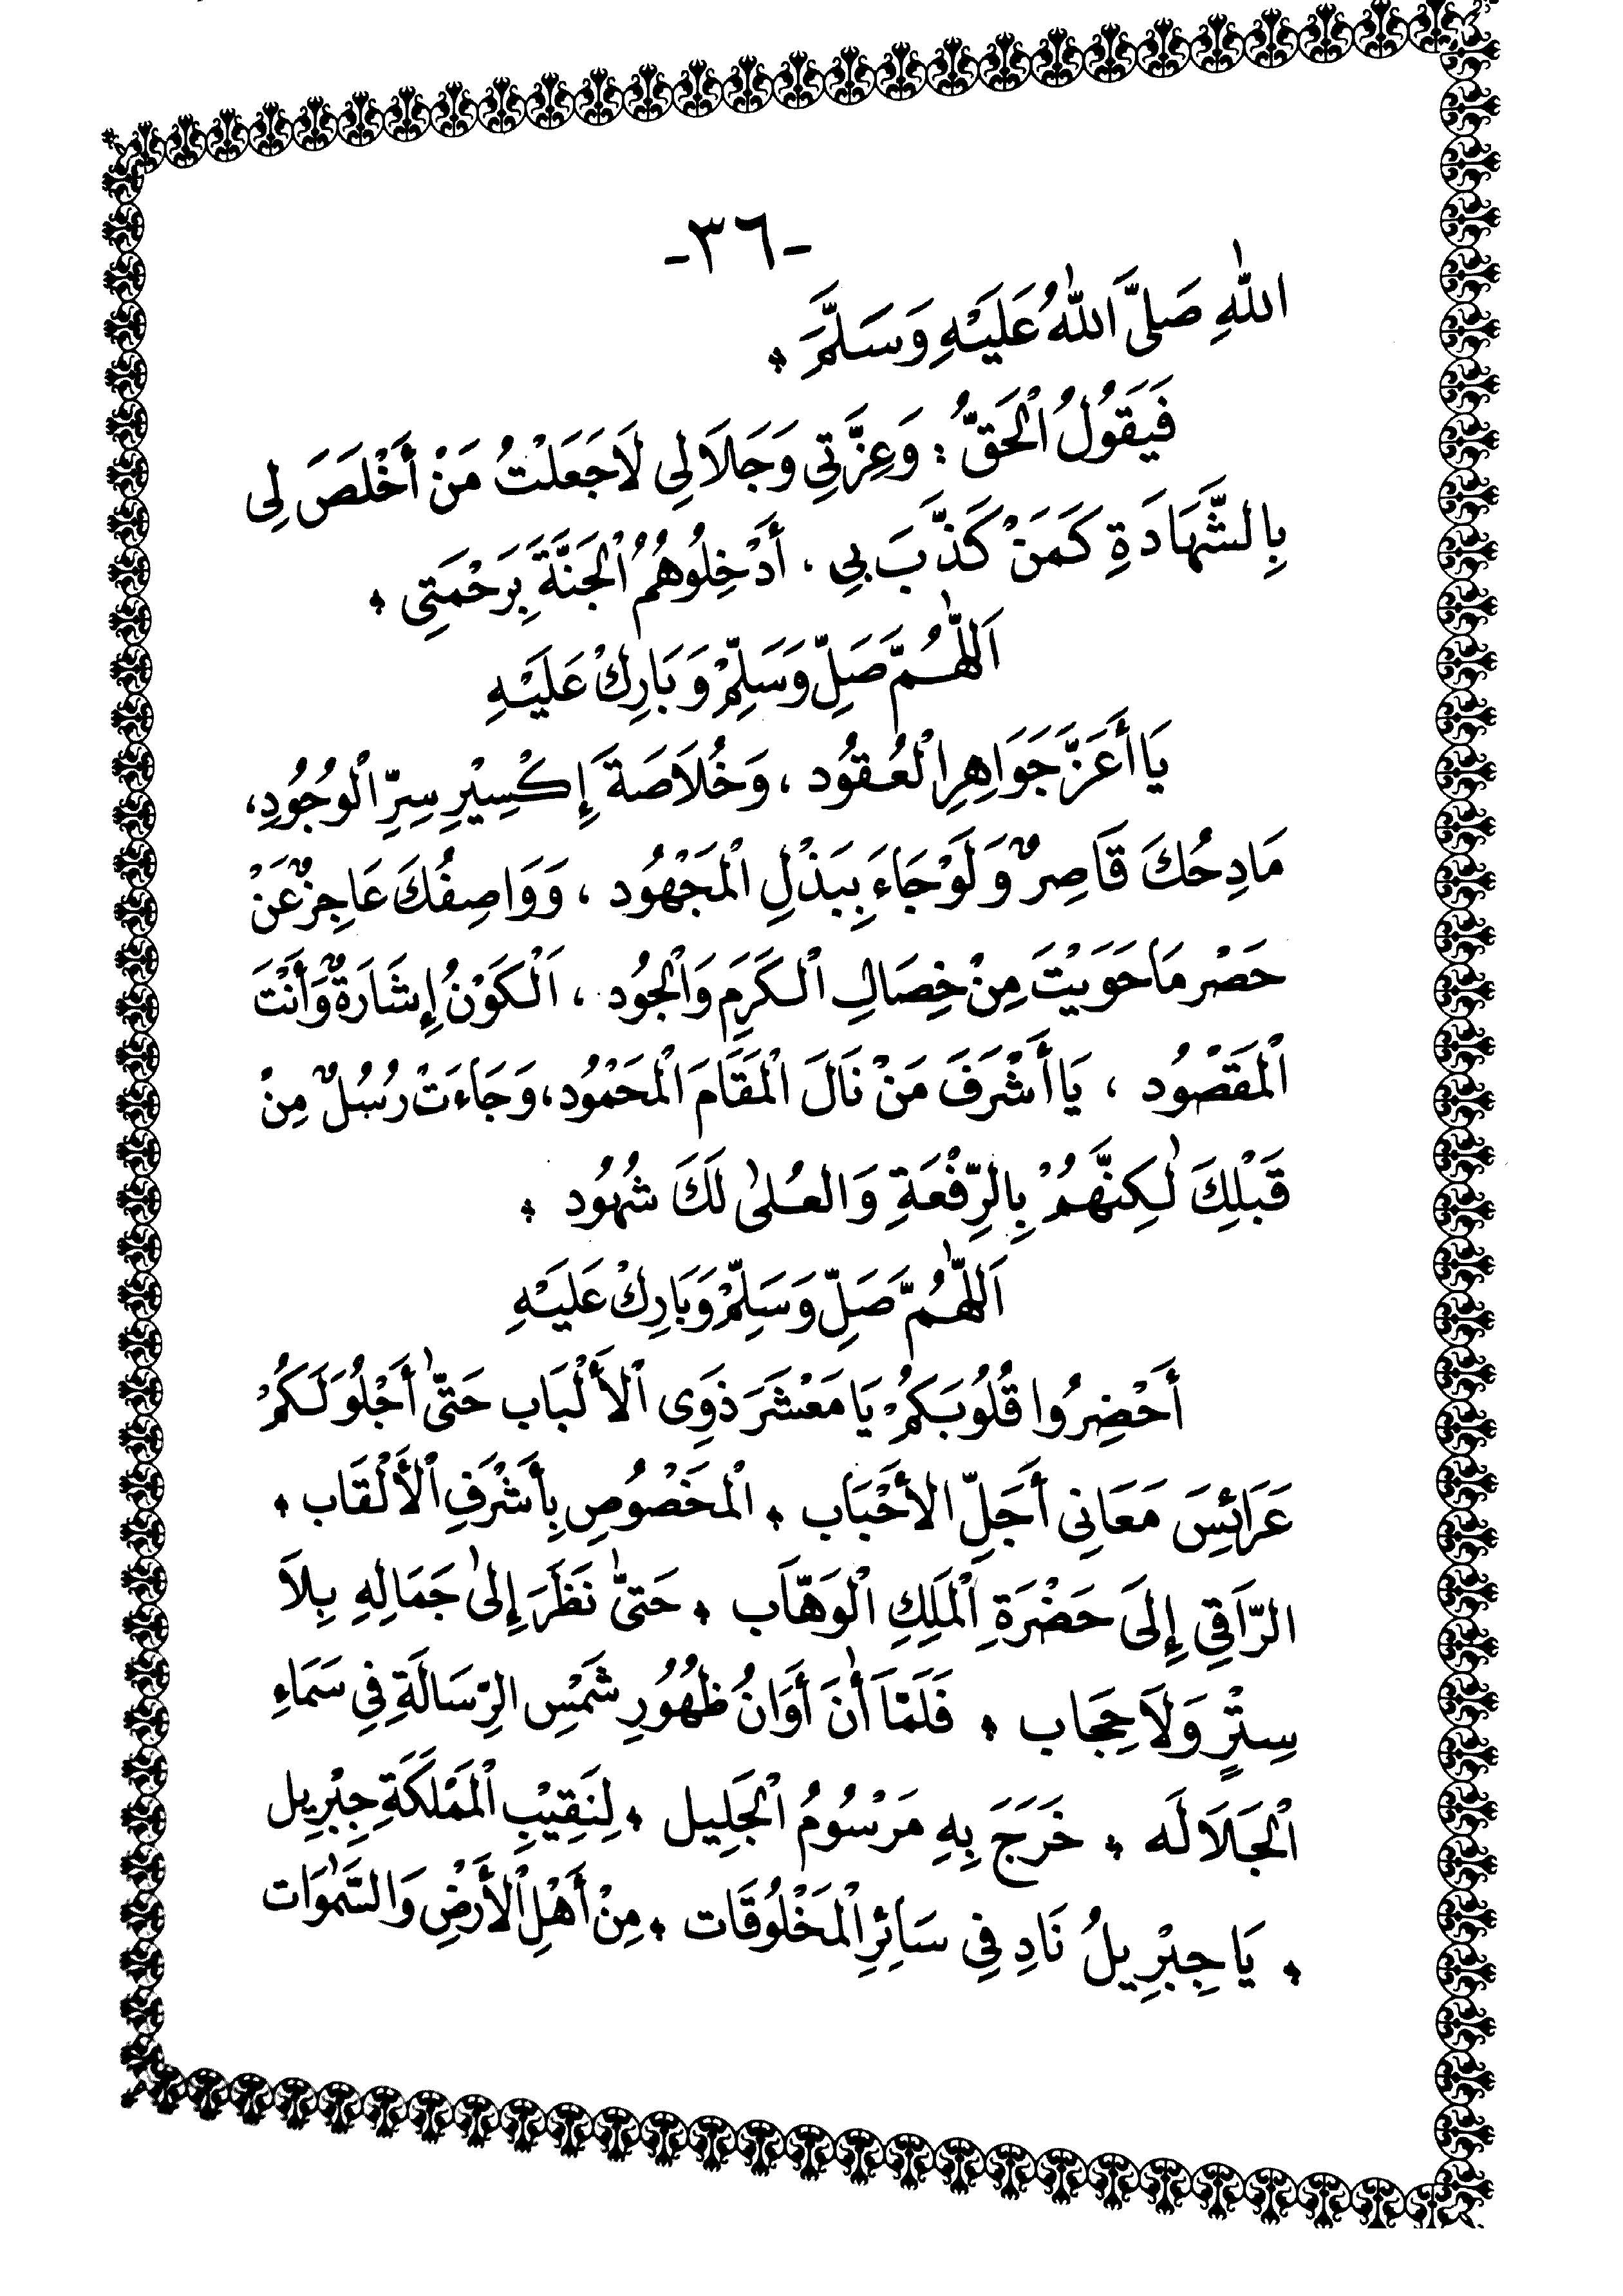 -٣٦-
اللهِ صَلَّى اللهُ عَلَيْهِ وَسَلَّمَ *
فَيَقُولُ الْحَقُّ : وَعِزَّتِي وَجَلَالِى لَاجَعَلْتُ مَنْ أَخْلَصَ لِى
بِالشَّهَادَةِ كَمَنْ كَذَّبَ بِى . أَدْخِلُوهُمُ الْجَنَّةَ بِرَحْمَتِى *
اَللّٰهُمَّ صَلِّ وَسَلِّمْ وَبَارِكْ عَلَيْهِ
يَا أَعَزَّ جَوَاهِرِ الْعُقُود ، وَخُلَاصَةَ إِكْسِيْرِ سِرِّ الْوُجُودِ،
مَادِحُكَ قَاصِرٌ وَلَوْ جَاءَ بِبَذْلِ الْمَجْهُود ، وَوَاصِفُكَ عَاجِزٌ عَنْ
حَصْرِ مَا حَوَيْتَ مِنْ خِصَالِ الْكَرَمِ وَالْجُود ، اَلْكَوْنُ إِشَارَةٌ وَأَنْتَ
الْمَقْصُود ، يَا أَشْرَفَ مَنْ نَالَ الْمَقَامَ الْمَحْمُود، وَجَاءَتْ رُسُلٌ مِنْ
قَبْلِكَ لٰكِنَّهُمْ بِالرِّفْعَةِ وَالعُلىٰ لَكَ شُهُود *
اَللّٰهُمَّ صَلِّ وَسَلِّمْ وَبَارِكْ عَلَيْهِ
أَحْضِرُوا قُلُوبَكُمْ يَا مَعْشَرَ ذَوِى الْأَلْبَاب حَتّٰى أَجْلُوَ لَكُمْ
عَرَائِسَ مَعَانِى أَجَلِّ الأَحْبَاب * الْمَخْصُوصِ بِأَشْرَفِ الْأَلْقَاب *
الرَّاقِي إِلَى حَضْرَةِ الْمَلِكِ الْوَهَّاب * حَتّٰى نَظَرَ إِلىٰ جَمَالِهِ بِلَا
سِتْرٍ وَلَا حِجَاب * فَلَمَّا أٰنَ أَوَانُ ظُهُورِ شَمْسِ الرِّسَالَةِ فِي سَمَاءِ
الْجَلَالَه * خَرَجَ بِهِ مَرْسُومُ الْجَلِيل * لِنَقِيْبِ الْمَمْلَكَةِ جِبْرِيل
* يَا جِبْرِيلُ نَادِ فِي سَائِرِ الْمَخْلُوقَات * مِنْ أَهْلِ الْأَرْضِ وَالسَّمٰوَات